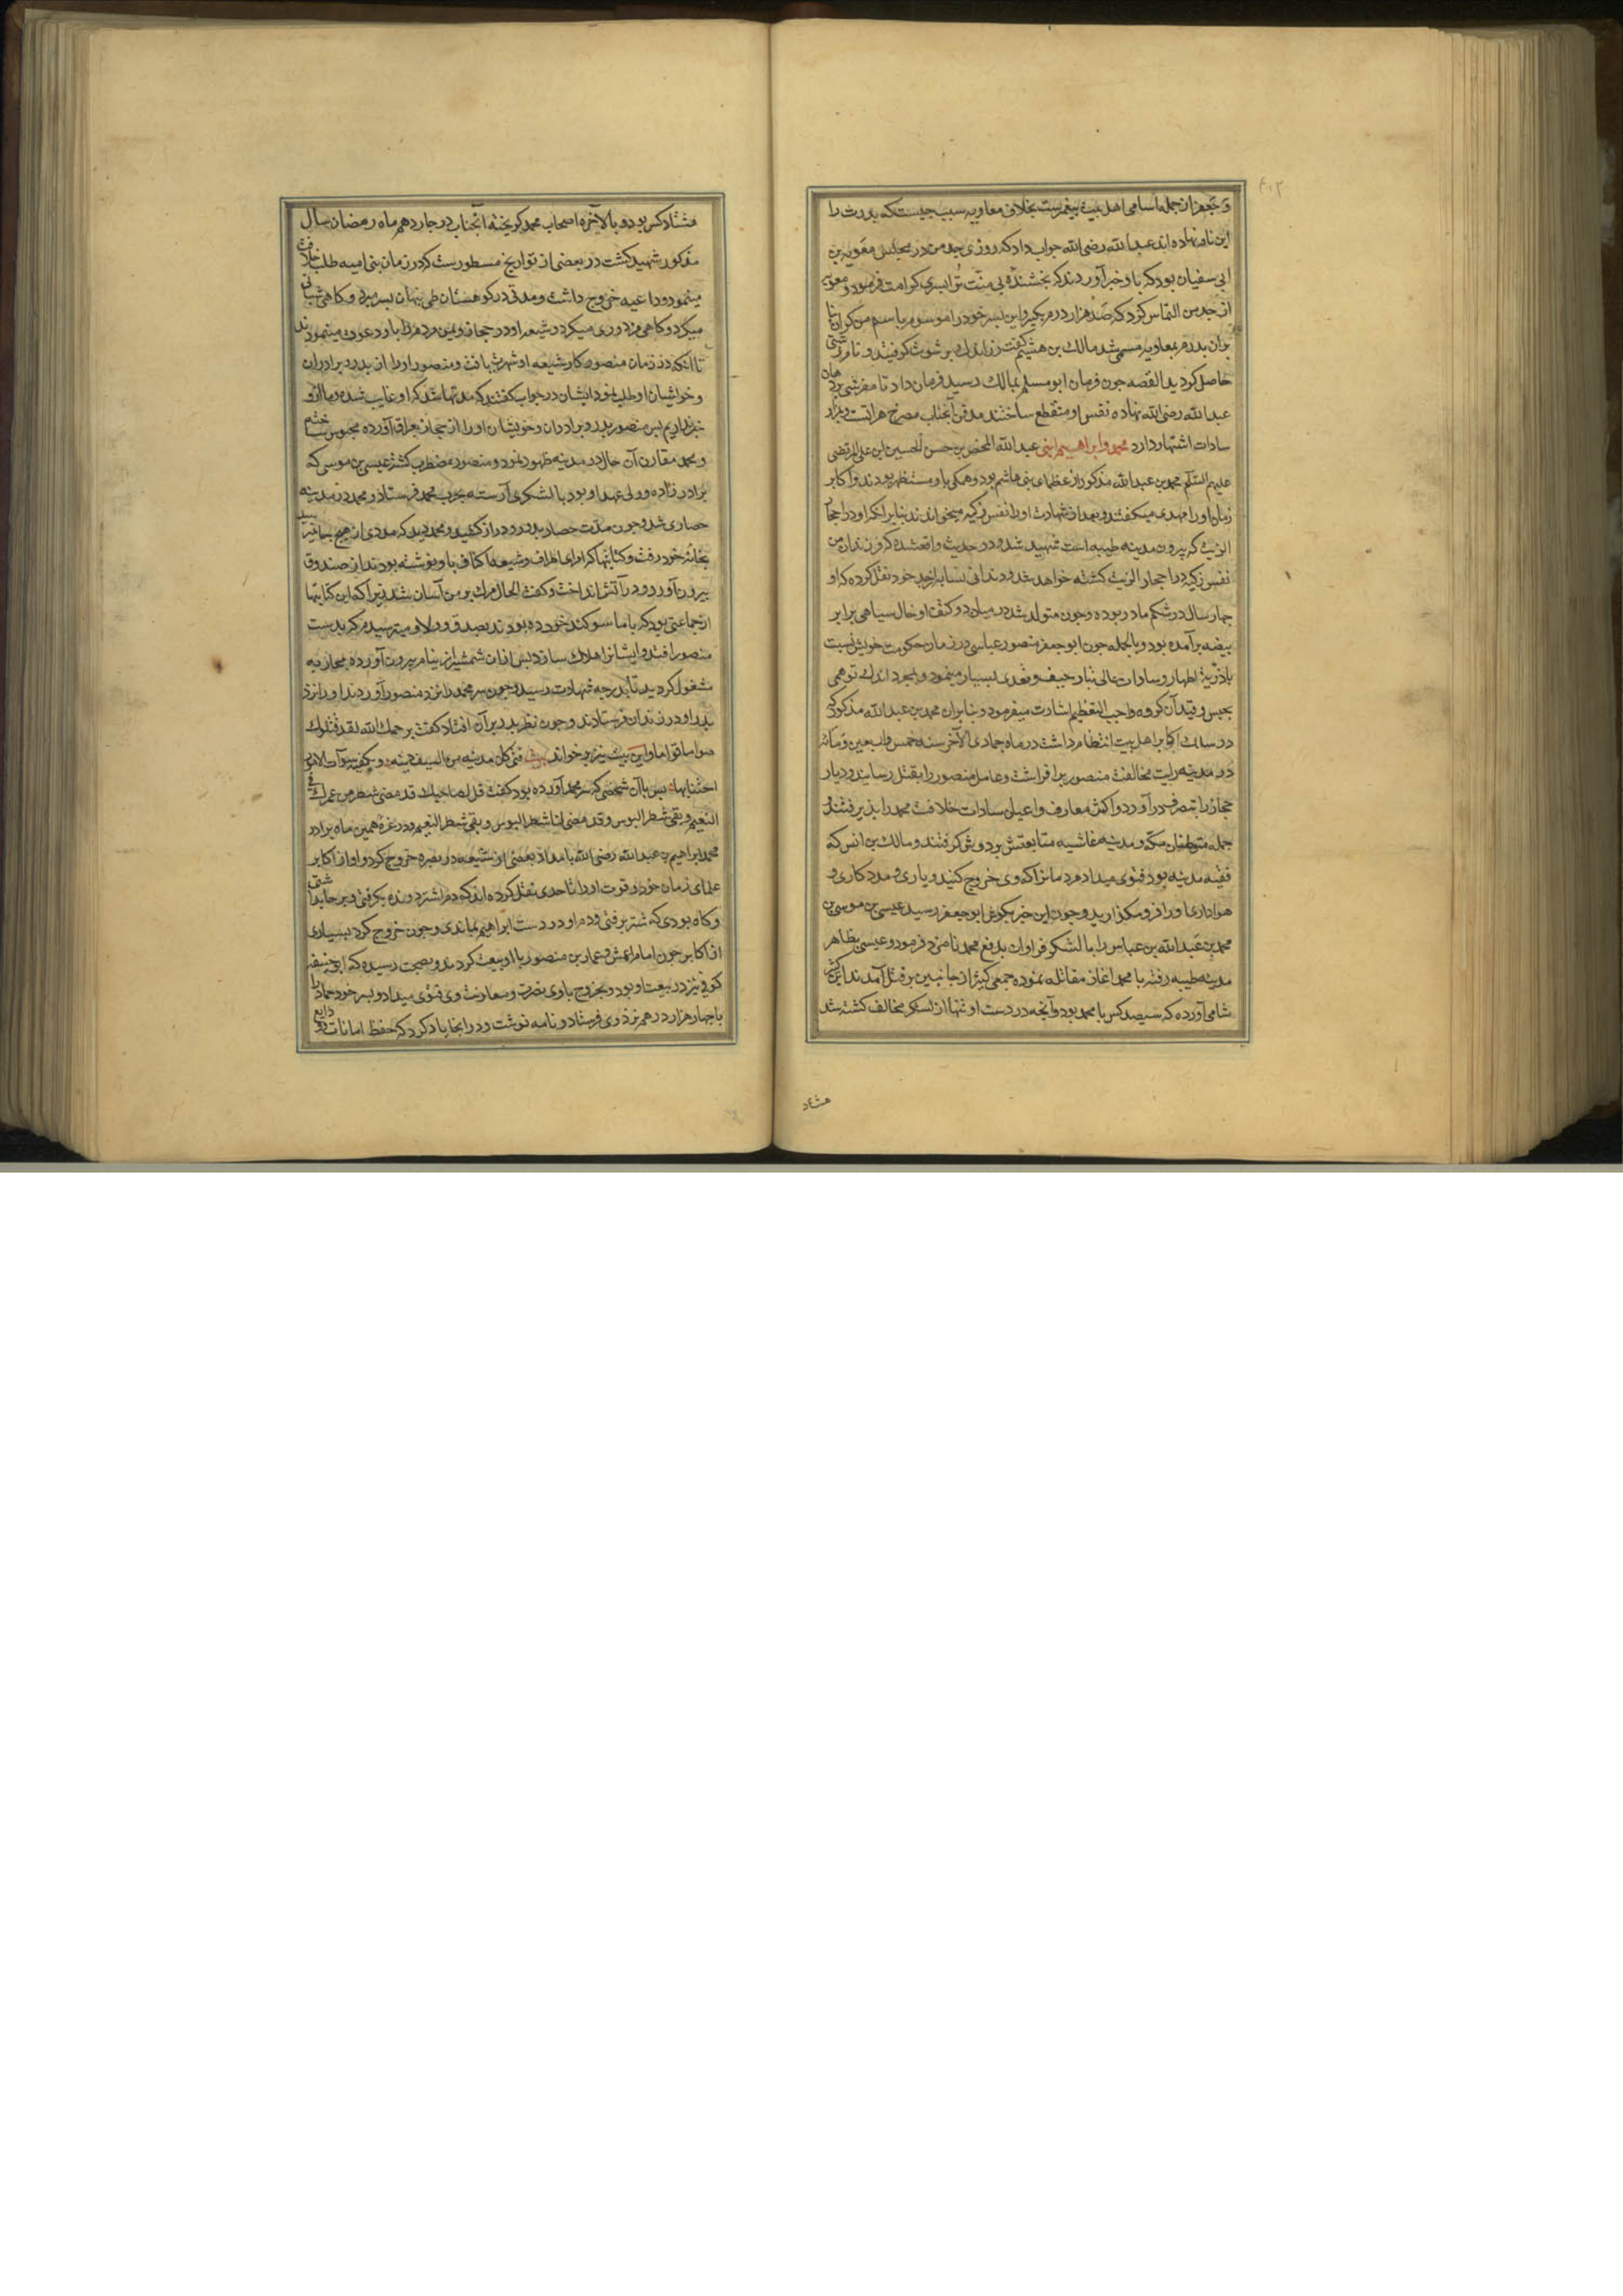 ۴۱۲
و جعفر از جمله اسامی اهل بیت پیغمبرست بخلاف معاویه سبب جیست که بدرت را
این نام نهاده اند عبدالله رضی الله جواب داد که روزی جد من در مجلس معویه بن
ابی سفیان بود که باو خبر آوردند که بخشنده بی منت ترا بسری کرامت فرمود و معویه
از جد من التماس کرد که صد هزار درم بگیر و این بسر خود را موسوم باسم من کردان تا
بران بدرم بمعاویه مسمی شد مالک بن هیثم کفت زر اندک برشوت کرفتید و نام زشتی
حاصل کردید القصه جون فرمان ابو مسلم بمالک رسید فرمان داد تا مفرشی بر دهان
عبدالله رضی الله نهاده نفس او منقطع ساختند مدفن آنجناب مصرخ هراتست و بمزار
سادات اشتهار دارد محمد و ابراهیم ابنی عبدالله المحض بن حسن الحسین ابن علی المرتضی
علیهم السلام محمد بن عبدالله مذکور از عظمای بنی هاشم بود و همکی باو مستظهر بودند و اکابر
زمان او را مهدی میکفتند و بعد از شهادت او را نفس زکیه میخواندند بنابر انکه او در احجار
الزیت که بیرون مدینه طیبه است شهید شد و در حدیث واقع شده که فرزندان من
نفس زکیه در احجار الزیت کشته خواهد شد و دندانی نسابه از جد خود نقل کرده که او
جهار سال در شکم مادر بوده و جون متولد شد در میان دو کتف او خال سیاهی برابر
بیضه برآمده بود و بالجمله جون ابو جعفر منصور عباسی در زمان حکومت خویش نسبت
بذریة اطهار و سادات عالی تبار حیف و تعدی بسیار مینمود و بمجرد اندک توهمی
بحبس و قید آن کروه واجب التعظیم اشارت میفرمود و بنابران محمد بن عبدالله مذکور که
در سلک اکابر اهل بیت انتظام داشت در ماه جمادی الآخر سنه خمس و اربعین و مائه
در مدینه رایت مخالفت منصور برافراشت و عامل منصور را بقتل رسانید و دیار
حجاز را بتصرف درآورد و اکثر معارف و اعیان سادات خلافت محمد را بذیرفتند و
جمله متوطنان مکه و مدینه غاشیه متابعتش بر دوش کرفتند و مالک بن انس که
فقیه مدینه بود فتوی میداد مردمانرا که وی خروج کنید و یاری و مددکاری و
هواداری او را فرو مکذارید و جون این خبر بکوش ابو جعفر رسید عیسی بن موسی بن
محمد بن عبدالله بن عباس را با لشکر فراوان بدفع محمد نامزد فرمود و عیسی بظاهر
مدینه طیبه رفته با محمد آغاز مقاتله نموده جمعی کثیر از جانبین بر قتل آمدند ابن کثیر
شامی آورده که سیصد کس با محمد بود و آنجه در دست او تنها از لشکر مخالف کشته شد
هشتاد
هشتاد کس بود و بالآخره اصحاب محمد کریخته آنجناب در جاردهم ماه رمضان سال
مذکور شهید کشت در بعضی از تواریخ مسطورست که در زمان بنی امیه طلب خلافت
مینمود و داعیه خروج داشت و مدتی در کوهستان طی بنهان بسر میبرد و کاهی شبانی
میکرد و کاهی مزدوری میکرد و شیعه او در حجاز و یمن مردم را باو دعوت مینمودند
تا آنکه در زمان منصور کار شیعه او شهرت یافت و منصور او را از بدر و برادران
و خویشان او طلب نمود ایشان در جواب کفتند که مدتها شد که او غایب شده و ما ازو
خبر نداریم بس منصور بدر و برادران و خویشان او را از حجاز بعراق آورده محبوس ساخته
و محمد مقارن آن حال در مدینه ظهور نمود و منصور مضطرب کشته عیسی بن موسی که
برادر زاده و ولی عهد او بود با لشکری آرسته بحرب محمد فرستاد و محمد در مدینه
حصاری شد و جون مدت حصار بدور و دراز کشید و محمد دید که مددی از هیج جا نمیرسد
بخانه خود رفت و کتابتها که امرای اطراف و شیعه اکناف باو نوشته بودند از صندوق
بیرون آورد و در آتش انداخت و کفت الحال مرک بر من آسان شد زیرا که این کتابتها
از جماعتی بود که با ما سوکند خورده بودند بصدق و ولا و میترسیدم که بدست
منصور افتد و ایشانرا هلاک سازد بس ازان شمشیر از نیام بیرون آورده بمحاربه
مشغول کردید تا بدرجه شهادت رسید و جون سر محمد را نزد منصور آوردند او را نزد
بدر او در زندان فرستادند و جون نظر بدر بر آن افتاد کفت یرحمک الله لقد قتلوک
صواما قواما و این بیت نیز بر خواند بیت فتی کان مدنیه من السیف دینه و یکفیه سوآت الامور
اجتنابها بس بآن شخص که سر محمد آورده بود کفت قل لصاحبک قد مضی شطر من عمرک فی
النعیم و بقی شطر البوس و قد مضی لنا شطر البوس و بقی شطر النعیم و در غره همین ماه برادر
محمد ابراهیم بن عبدالله رضی الله بامداد بعضی از شیعه در بصره خروج کرد و او از اکابر
علمای زمان خود و قوت او را تا حدی نقل کرده اند که دم اشتر دونده بکرفتی و بر جا بداشتی
و کاه بودی که شتر برفتی و دم او در دست ابراهیم بماندی و جون خروج کرد بسیاری
از اکابر جون امام اعمش و عمار بن منصور با او بیعت کردند و بصحت رسیده که ابو حنیفه
کوفی نیز در بیعت او بود و بخروج با وی نصرت و معاونت وی فتوی میداد و بسر خود حماد را
با جهار هزار درهم نزد وی فرستاد و نامه نوشت و در انجا یاد کرد که حفظ امانات و ودایع